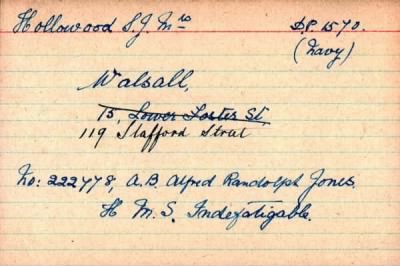 Hollowood S.J. Mrs D.P. 1570.
(Navy)
Walsall,
15, Lower Foster St.
119 Stafford Street
No: 222778, A.B. Alfred Randolph Jones.
H.M.S. Indefatigable.